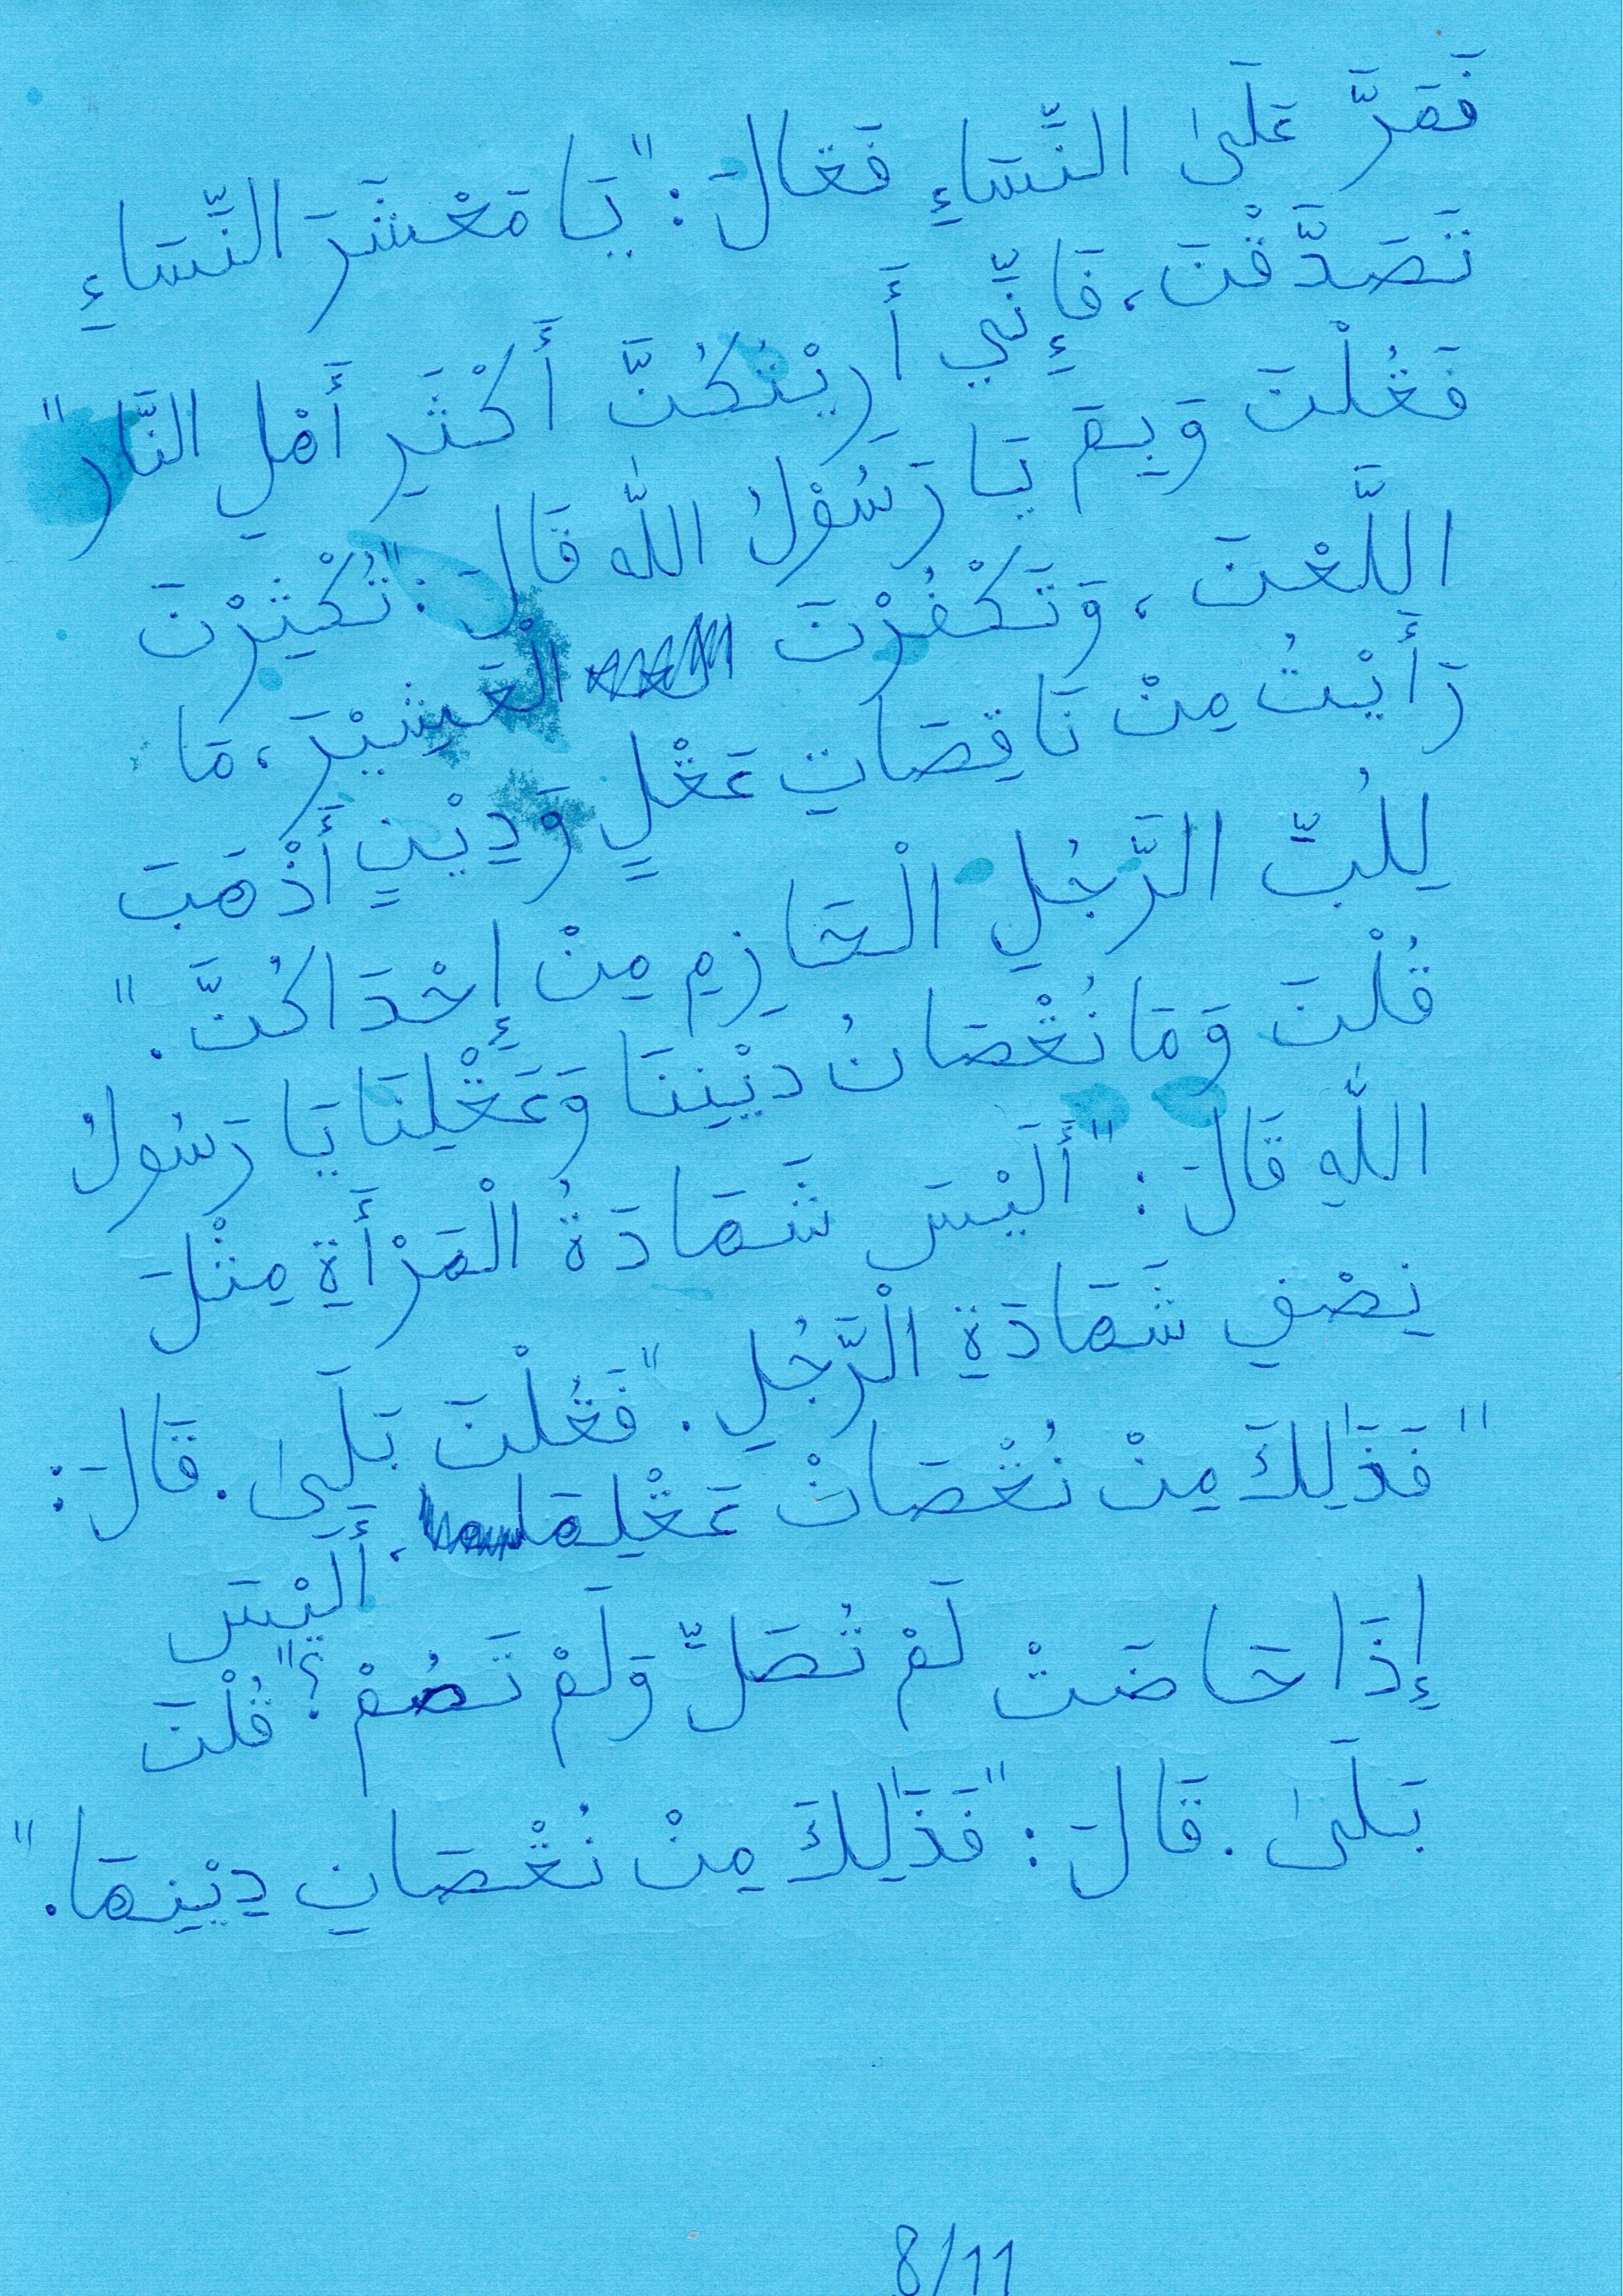 فَمَرَّ عَلَىٰ النِّسَاءِ فَقَالَ: "يَا مَعْشَرَ النِّسَاءِ
تَصَدَّقْنَ، فَإِنِّي أَرِيْتُكُنَّ أَكْثَرِ أَهْلِ النَّار"
فَقُلْنَ وَبِمَ يَا رَسُوْلُ اللّٰه قَالَ: "تُكْثِرْنَ
اللَّعْنَ، وَتَكْفُرْنَ الْعَشِيْرَ، مَا
رَأَيْتُ مِنْ نَاقِصَاتِ عَقْلٍ وَدِيْنٍ أَذْهَبَ
لِلُبِّ الرَّجُلِ الْحَازِمِ مِنْ إِحْدَاكُنَّ."
قُلْنَ وَمَا نُقْصَانُ دِيْنِنَا وَعَقْلِنَا يَا رَسُولُ
اللّٰهِ قَالَ: "أَلَيْسَ شَهَادَةُ الْمَرْأَةِ مِثْلَ
نِصْفِ شَهَادَةِ الْرَّجُلِ." فَقُلْنَ بَلَىٰ. قَالَ:
"فَذَٰلِكَ مِنْ نُقْصَانْ عَقْلِهَا، أَلَيْسَ
إِذَا حَاضَتْ لَمْ تُصَلِّ وَلَمْ تَصُمْ؟" قُلْنَ
بَلَىٰ. قَالَ: "فَذَٰلِكَ مِنْ نُقْصَانِ دِيْنِهَا."
8/11